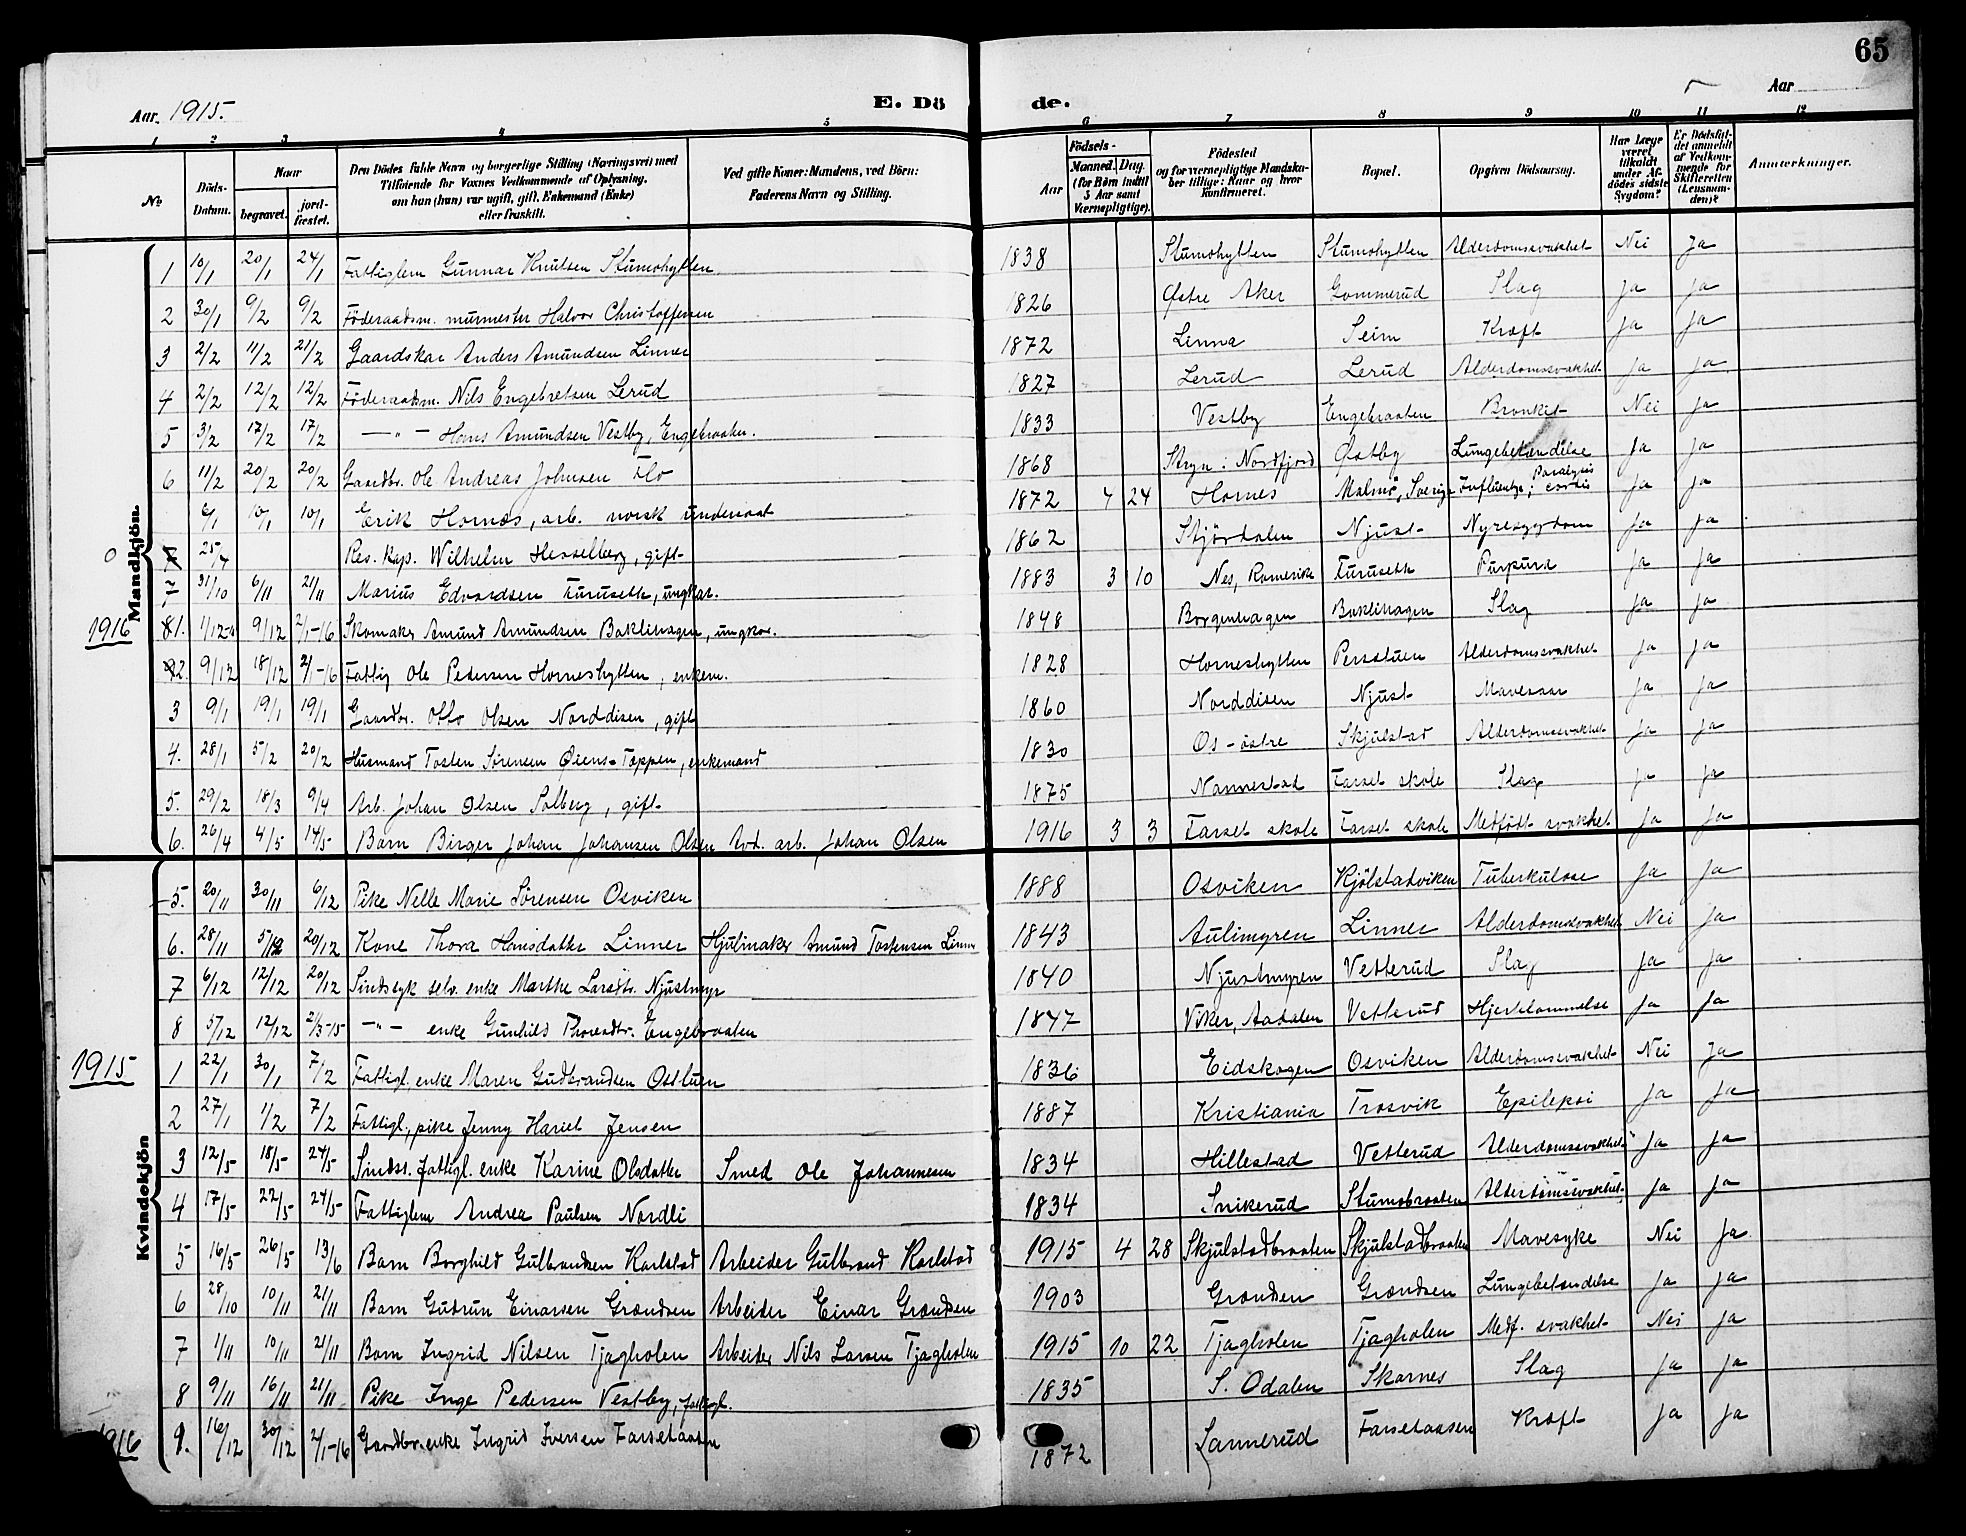 65
Aar. 1915. E. Dö de. Aar
1 2 3 4 5 6 7 8 9 10 11 12
No
Döds-Datum.
Naar begravet. jord-fæstet.
Den Dödes fulde Navn og borgerlige Stilling (Næringsvei) med Tilföiende for Voxnes Vedkommende af Oplysning, om han (hun) var ugift, gift, Enkemand (Enke) eller fraskilt.
Ved gifte Koner: Mandens, ved Börn: Faderens Navn og Stilling.
Födsels-
Aar Maaned. Dag. (for Börn indtil 5 Aar samt Værnepligtige).
Födested og for værnepligtige Mandskaber tillige: Naar og hvor konfirmeret.
Bopæl.
Opgiven Dödsaarsag.
Har Læge været tilkaldt under Afdödes sidste Sygdom?
Er Dödsfaldet anmeldt af Vedkommende for Skifteretten (Lensmanden)?
Anmærkninger.
Mandkjön.
1 10/1 20/1 24/1 Fattiglem Gunnar Knutsen Stumohytten 1838 Stumohytten Stumohytten Alderdomssvakhet Nei Ja
2 30/1 9/2 9/2 Föderaadsm. murmester Halvor Christoffersen 1826 Østre Aker Gommerud Slag Ja Ja
3 2/2 11/2 21/2 Gaardskar Anders Amundsen Linner 1872 Linna Seim Kræft Ja Ja
4 2/2 12/2 12/2 Föderaadsm. Nils Engebretsen Lerud 1827 Lerud Lerud Alderdomssvakhet Ja Ja
5 3/2 17/2 17/2 —"— Hans Amundsen Vestby, Engebraaten. 1833 Vestby Engebraaten Bronkit Nei Ja
6 11/2 20/2 20/2 Gaardbr. Ole Andreas Johnsen Flo 1868 Stryn i Nordfjord Østby Lungebetændelse Ja Ja
6/1 10/1 10/1 Erik Hornæs, arb. norsk undersaat 1872 7 24 Hornes Malmö, Sverige Influentza; Paralysis cordis Ja Ja
25/4 Res. Kap. Wilhelm Hesselberg, gift 1862 Stjørdalen Njust Nyresygdom Ja Ja
7 31/10 6/11 21/11 Marius Edvardsen Furuseth, ungkar. 1883 3 10 Nes, Romerike Furuseth Purpura Ja Ja
1916
1. 1/12 9/12 2/1-16 Skomaker Amund Amundsen Baklihagen, ungkar. 1848 Borgenhagen Baklihagen Slag Ja Ja
2. 9/12 18/12 2/1-16 Fattig Ole Pedersen Horneshytten, enkem. 1828 Horneshytten Perstuen Alderdomssvakhet Ja Ja
3 9/1 19/1 19/1 Gaardbr. Otto Olsen Norddisen, gift 1860 Norddisen Njust Mavesaar Ja Ja
4. 28/1 5/2 20/2 Husmand Tosten Sørensen Øiens-Tæppen, enkemand 1830 Os-østre Skjulstad Alderdomssvakhet Ja Ja
5. 29/2 18/3 9/4 Arb. Johan Olsen Solberg, gift 1875 Nannestad Farset skole Slag Ja Ja
6. 26/4 4/5 14/5 Barn Birger Johan Johansen Olsen Avd. arb. Johan Olsen 1916 3 3 Farset skole Farset skole Medfödt svakhet Ja Ja
Kvindekjön
5. 20/11 30/11 6/12 Pike Nelle Marie Sørensen Osviken 1888 Osviken Kjölstadviken Tuberkulose Ja Ja
6. 28/11 5/12 20/12 Kone Thora Hansdatter Linner Hjulmaker Amund Tostensen Linner 1843 Aulimyren Linner Alderdomssvakhet Nei Ja
7 6/12 12/12 20/12 Sindssyk selv. enke Marthe Larsdtr. Njustmyr 1840 Njustmyren Vetterud Slag Ja Ja
8 5/12 12/12 2/3-15 —"— enke Gunhild Thorsdtr. Engebraaten 1847 Viker, Aadalen Vetterud Hjertelammelse Ja Ja
1915
1 22/1 30/1 7/2 Fattigl. enke Maren Gudbrandsen Oststuen 1836 Eidskogen Osviken Alderdomssvakhet Nei Ja
2 27/1 1/2 7/2 Fattigl., pike Jenny Hariet Jensen 1887 Kristiania Trosvik Epilepsi Ja Ja
3 12/5 18/5 24/5 Sindss. fattigl. enke Karine Olsdatter Smed Ole Johannesen 1834 Hillestad Vetterud Alderdomssvakhet Ja Ja
4 17/5 22/5 24/5 Fattiglem Andrea Paulsen Nordli 1834 Snikerud Stumobraaten Alderdomssvakhet Ja Ja
5 16/5 26/5 13/6 Barn Borghild Gulbrandsen Karlstad Arbeider Gulbrand Karlstad 1915 4 28 Skjulstadbraaten Skjulstadbraaten Mavesyke Nei Ja
6 28/10 10/11 21/11 Barn Gudrun Einarsen Grøndsen Arbeider Einar Grøndsen 1903 Grøndsen Grøndsen Lungebetændelse Ja Ja
7 1/11 10/11 21/11 Barn Ingrid Nilsen Tjagholen Arbeider Nils Larsen Tjagholen 1915 10 22 Tjagholen Tjagholen Medf. svakhet Nei Ja
8 9/11 16/11 21/11 Pike Inge Pedersen Vestby, fattigl. 1835 S. Odalen Skarnes Slag Ja Ja
1916
9. 16/12 30/12 2/1-16 Gardbr.enke Ingrid Iversen Farsetaasen 1872 Sannerud Farsetaasen Kræft Ja Ja